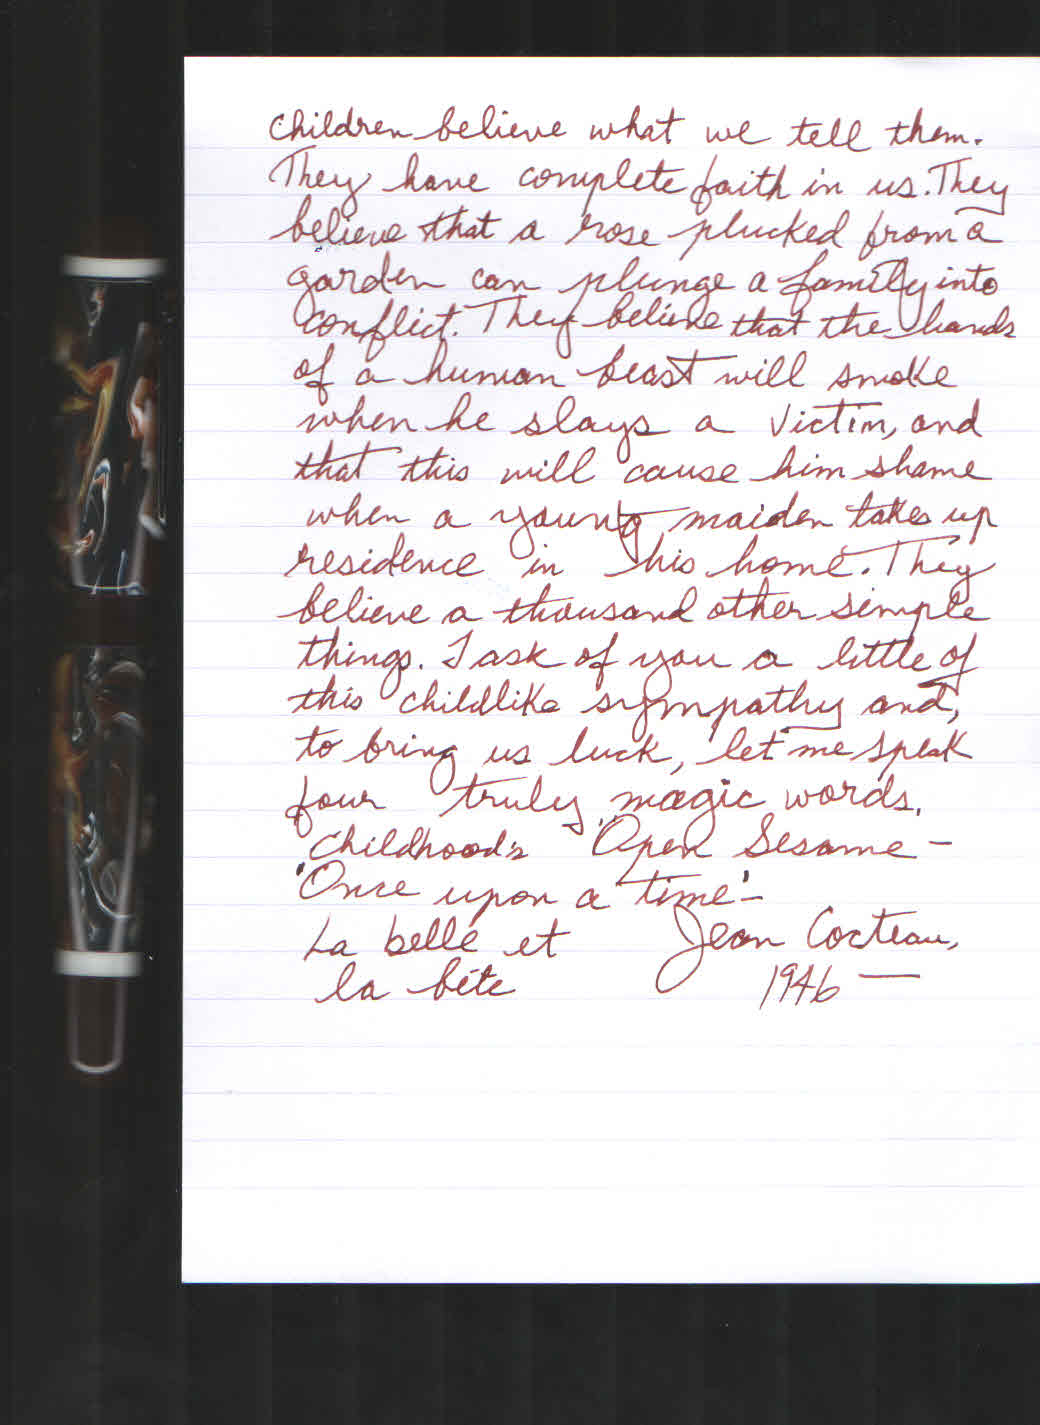 Children believe what we tell them.
They have complete faith in us. They
believe that a rose plucked from a
garden can plunge a family into
conflict. They believe that the hands
of a human beast will smoke
when he slays a victim, and
that this will cause him shame
when a young maiden takes up
residence in his home. They
believe a thousand other simple
things. I ask of you a little of
this childlike sympathy and,
to bring us luck, let me speak
four truly magic words,
childhood's "Open Sesame" –
'Once upon a time' –
La belle et Jean Cocteau,
la bête 1946 —